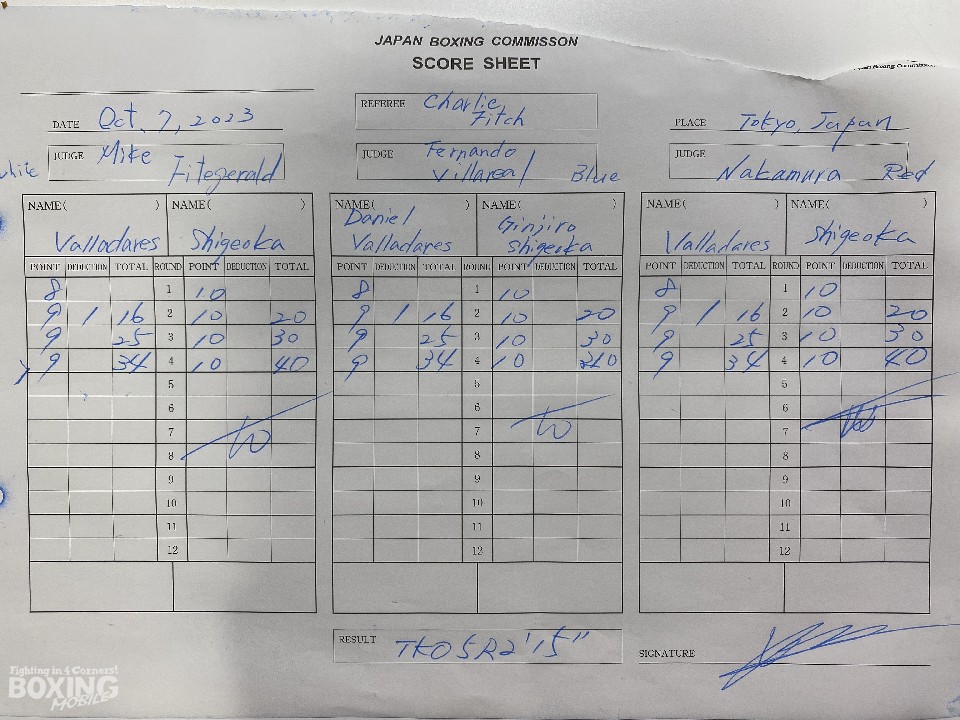 JAPAN BOXING COMMISSON
SCORE SHEET
DATE Oct, 7, 2023
REFEREE Charlie Fitch
PLACE Tokyo, Japan
JUDGE Mike Fitzgerald
JUDGE Fernando Villareal
JUDGE Nakamura
white
Blue
Red
NAME( ) NAME( )
Valladares Shigeoka
NAME( ) NAME( )
Daniel Valladares Ginjiro Shigeoka
NAME( ) NAME( )
Valladares Shigeoka
POINT DEDUCTION TOTAL ROUND POINT DEDUCTION TOTAL
8 1 10
9 1 16 2 10 20
9 25 3 10 30
9 34 4 10 40
5
6
7
8
9
10
11
12
POINT DEDUCTION TOTAL ROUND POINT DEDUCTION TOTAL
8 1 10
9 1 16 2 10 20
9 25 3 10 30
9 34 4 10 40
5
6
7
8
9
10
11
12
POINT DEDUCTION TOTAL ROUND POINT DEDUCTION TOTAL
8 1 10
9 1 16 2 10 20
9 25 3 10 30
9 34 4 10 40
5
6
7
8
9
10
11
12
RESULT TKO 5R 2'15"
SIGNATURE
Fighting in 4 Corners!
BOXING
MOBILE